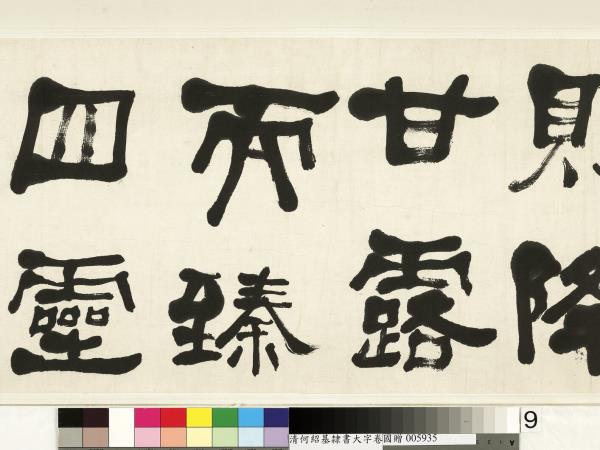 則降
甘露
而臻
四靈
9
清何紹基隸書大字卷國贈 005935